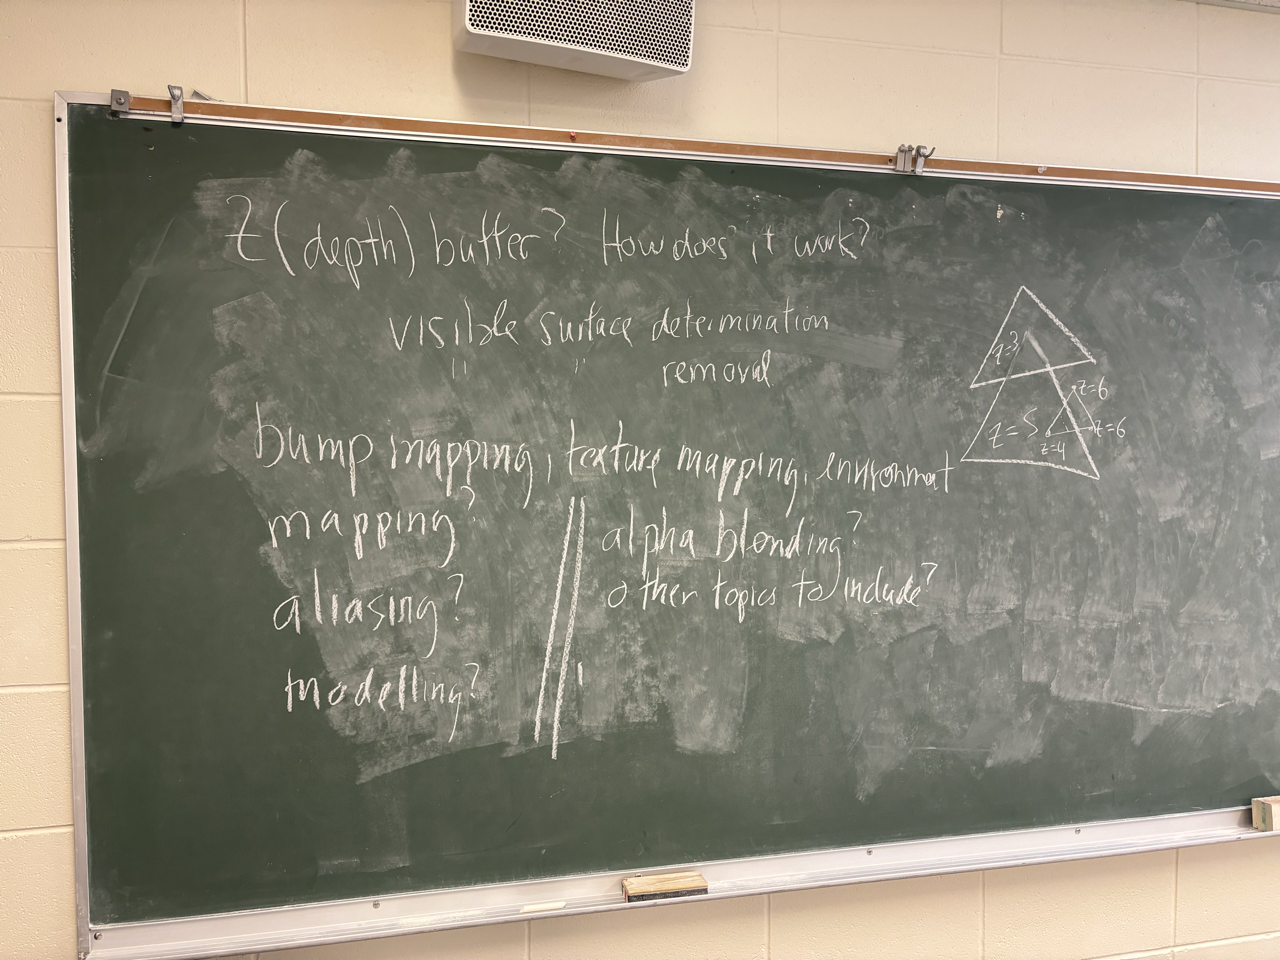 Z (depth) buffer? How does it work?
visible surface determination
" " removal
bump mapping, texture mapping, environment
mapping?
alpha blending?
aliasing?
other topics to include?
modelling?
z=3
z=5
z=6
z=6
z=4